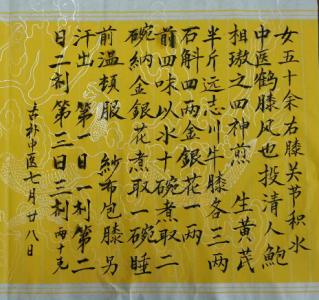 女五十余右膝关节积水
中医鹤膝风也投清人鲍
相璈之四神煎 生黄芪
半斤远志川牛膝各三两
石斛四两金银花一两
前四味以水十碗煮取二
碗纳金银花煮取一碗睡
前温顿服 纱布包膝另
汗出 第一日一剂第二
日二剂第三日三剂
古朴中医七月廿八日